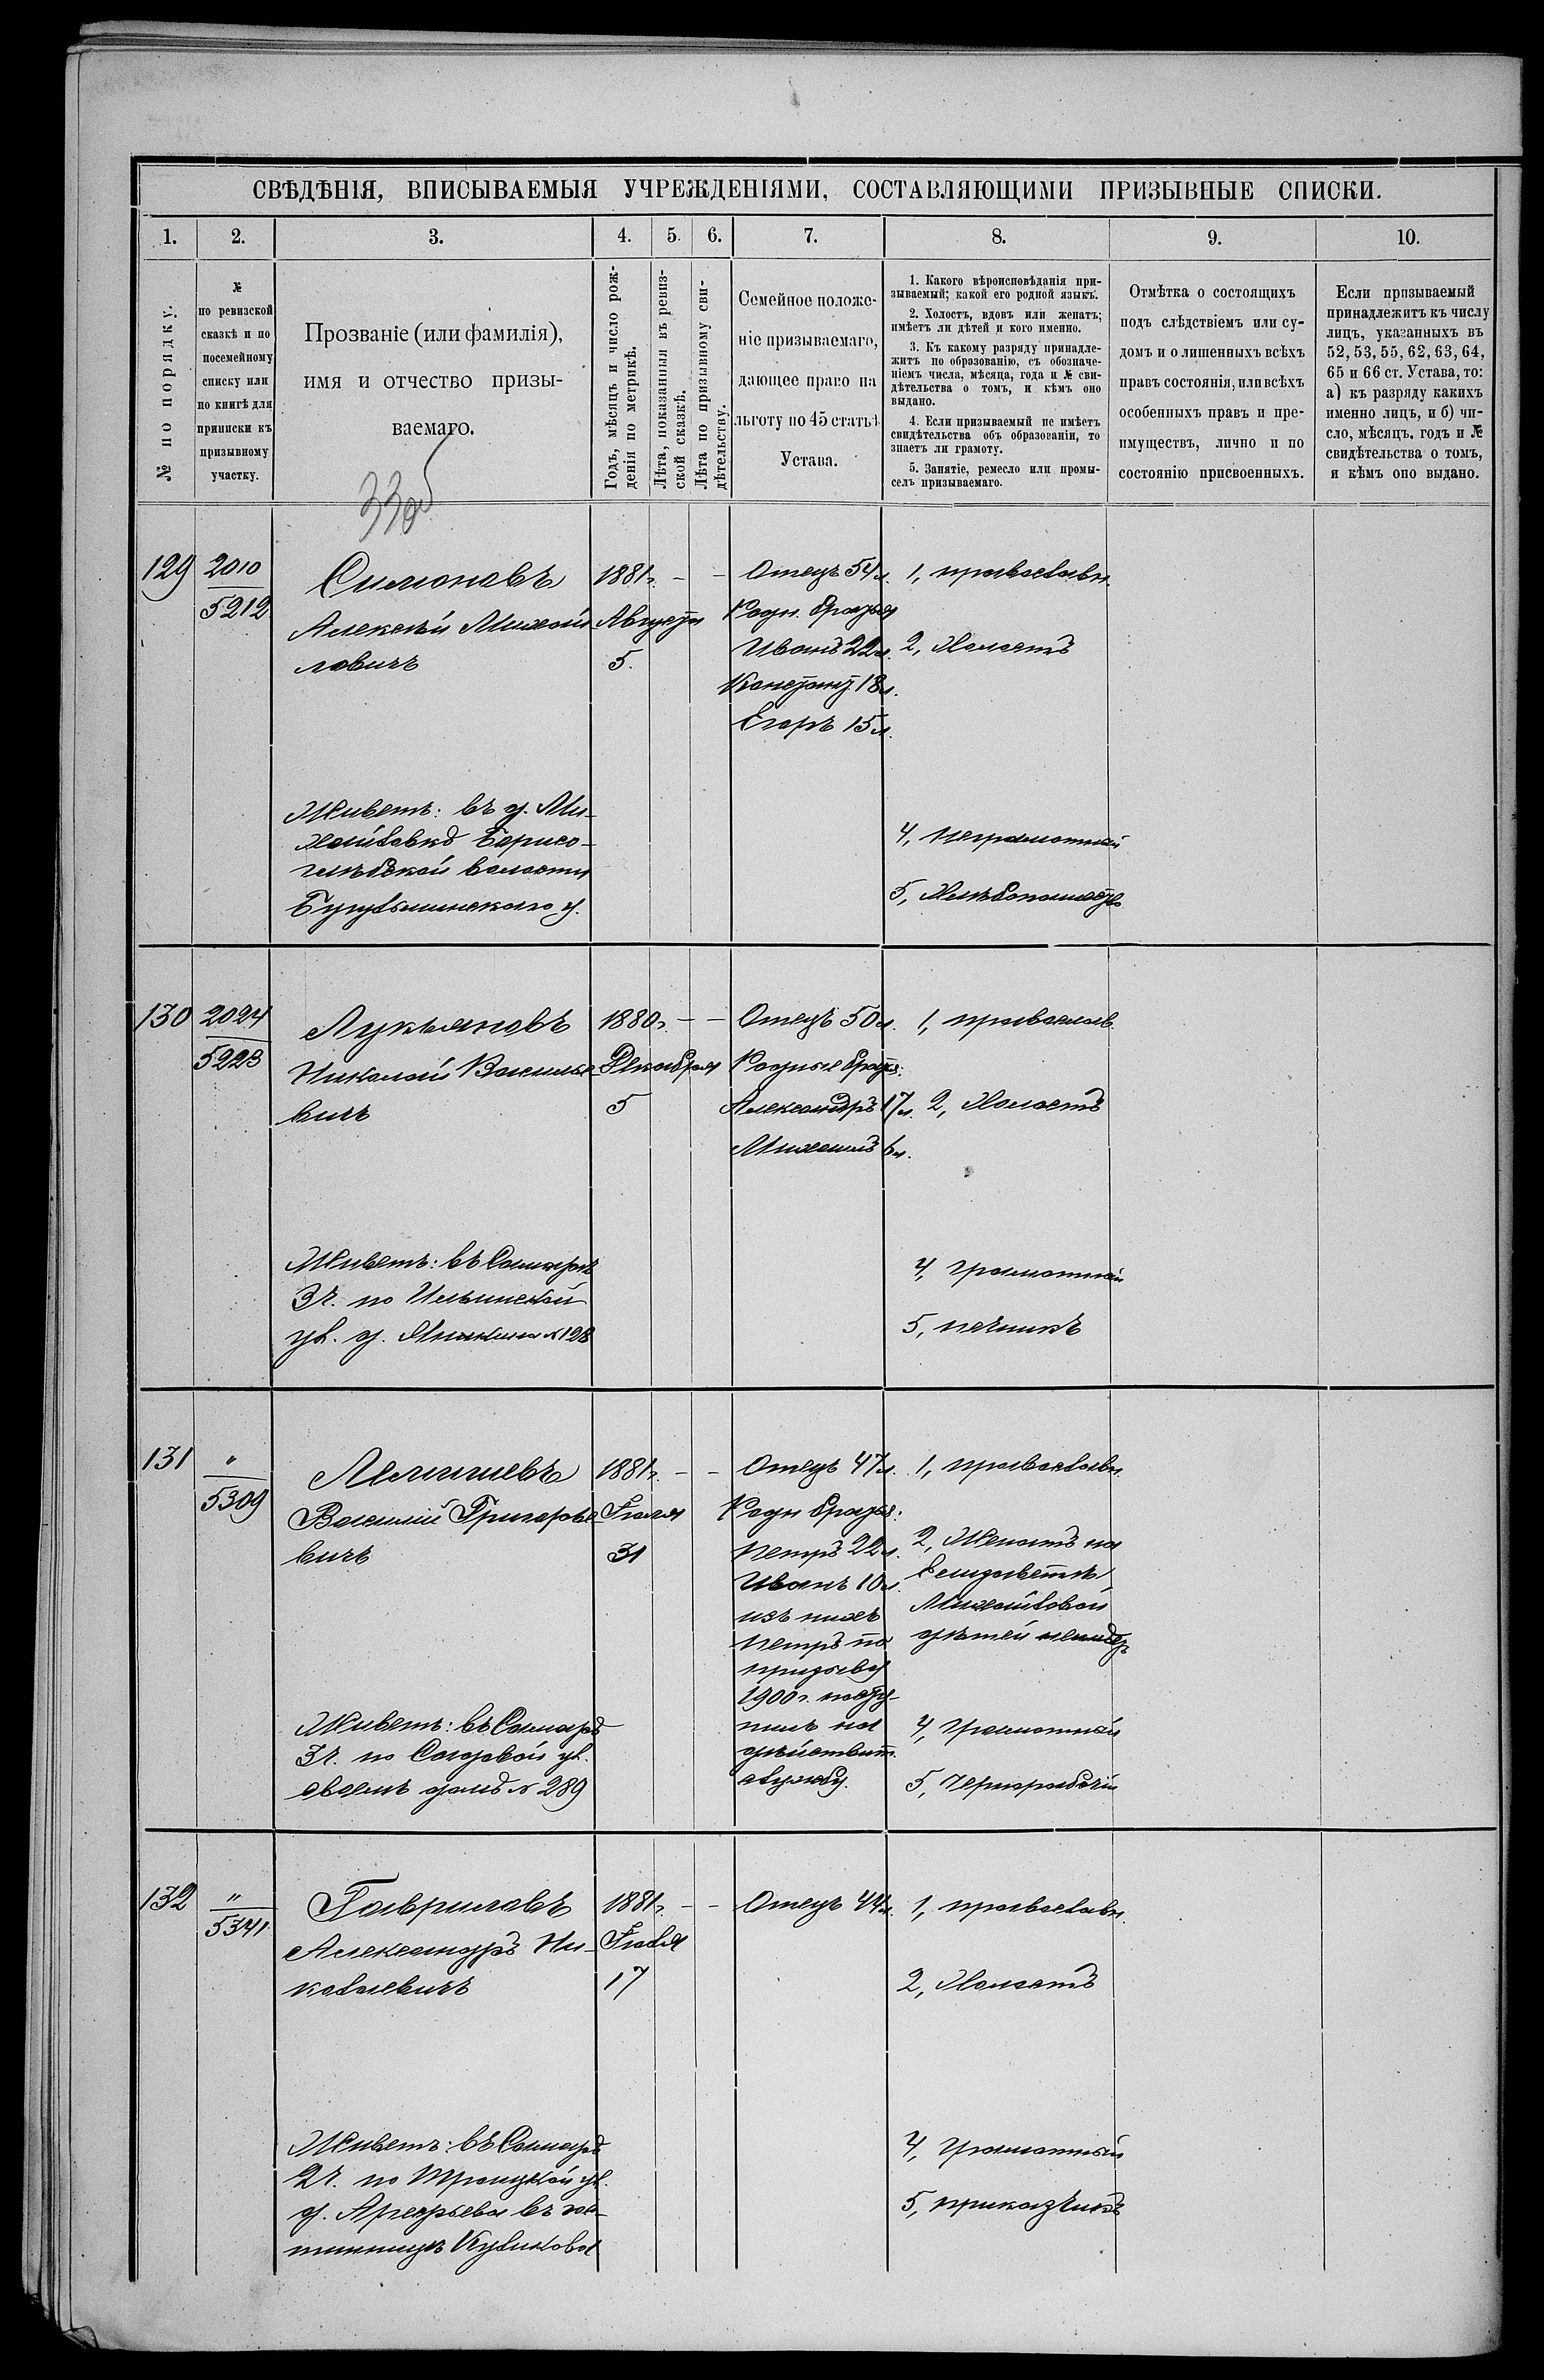 СВѢДѢНІЯ, ВПИСЫВАЕМЫЯ УЧРЕЖДЕНІЯМИ, СОСТАВЛЯЮЩИМИ ПРИЗЫВНЫЕ СПИСКИ.
1. 2. 3. 4. 5. 6. 7. 8. 9. 10.
№ по порядку.
№
по ревизской
сказкѣ и по
посемейному
списку или
по книгѣ для
приписки къ
призывному
участку.
Прозваніе (или фамилія),
имя и отчество призы-
ваемаго.
Годъ, мѣсяцъ и число рож-
денія по метрикѣ.
Лѣта, показанныя въ ревиз-
ской сказкѣ.
Лѣта по призывному сви-
дѣтельству.
Семейное положе-
ніе призываемаго,
дающее право на
льготу по 45 статьѣ
Устава.
1. Какого вѣроисповѣданія при-
зываемый; какой его родной языкъ.
2. Холостъ, вдовъ или женатъ;
имѣетъ ли дѣтей и кого именно.
3. Къ какому разряду принадле-
житъ по образованію, съ обозначе-
ніемъ числа, мѣсяца, года и № сви-
дѣтельства о томъ, и кѣмъ оно
выдано.
4. Если призываемый не имѣетъ
свидѣтельства объ образованіи, то
знаетъ ли грамоту.
5. Занятіе, ремесло или промы-
селъ призываемаго.
Отмѣтка о состоящихъ
подъ слѣдствіемъ или су-
домъ и о лишенныхъ всѣхъ
правъ состоянія, или всѣхъ
особенныхъ правъ и пре-
имуществъ, лично и по
состоянію присвоенныхъ.
Если призываемый
принадлежитъ къ числу
лицъ, указанныхъ въ
52, 53, 55, 62, 63, 64,
65 и 66 ст. Устава, то:
а) къ разряду какихъ
именно лицъ, и б) чи-
сло, мѣсяцъ, годъ и №
свидѣтельства о томъ,
и кѣмъ оно выдано.
129
2010
5212
Симоновъ
Алексѣй Михай-
ловичъ
Живетъ: въ д. Ми-
хайловкѣ Борисо-
глѣбской волости
Бугульминскаго у.
1881г. - -
Августа
5.
Отецъ 54л.
Родн. братья
Иванъ 22л.
Констант 18л.
Егоръ 15л.
1, православн.
2, Холостъ
4, неграмотный
5, Хлѣбопашество
130
2024
5223
Лукьяновъ
Николай Василье-
вичъ
Живетъ: въ Самарѣ
3ч. по Ильинской
ул. д. №128
1880г. - -
Декабря
5
Отецъ 50л.
Родные братья:
Александръ 17л.
Михаилъ 6л.
1, православ.
2, Холостъ
4, грамотный
5, печникъ
131
"
5309
Василій Григорье-
вичъ
Живетъ: въ Самарѣ
3ч. по Садовой ул.
своемъ домѣ №289
1881г. - -
Іюля
31
Отецъ 47л.
Родн братья:
Петръ 22л.
Иванъ 10л.
изъ нихъ
Петръ по
призыву
1900г. посту-
пилъ на
дѣйствит.
службу.
1, православн.
2, Женатъ на
Елизаветѣ
Михайловой
дѣтей
4, грамотный
5, Чернорабочій
132
"
5341
Гавриловъ
Александръ Ни-
колаевичъ
Живетъ: въ Самарѣ
2ч. по Троицкой ул.
д. Арефьева въ гос-
тинницѣ Куликова
1881г. - -
Іюля
17
Отецъ 44л.
1, православн.
2, Холостъ
4, грамотный
5, приказчикъ